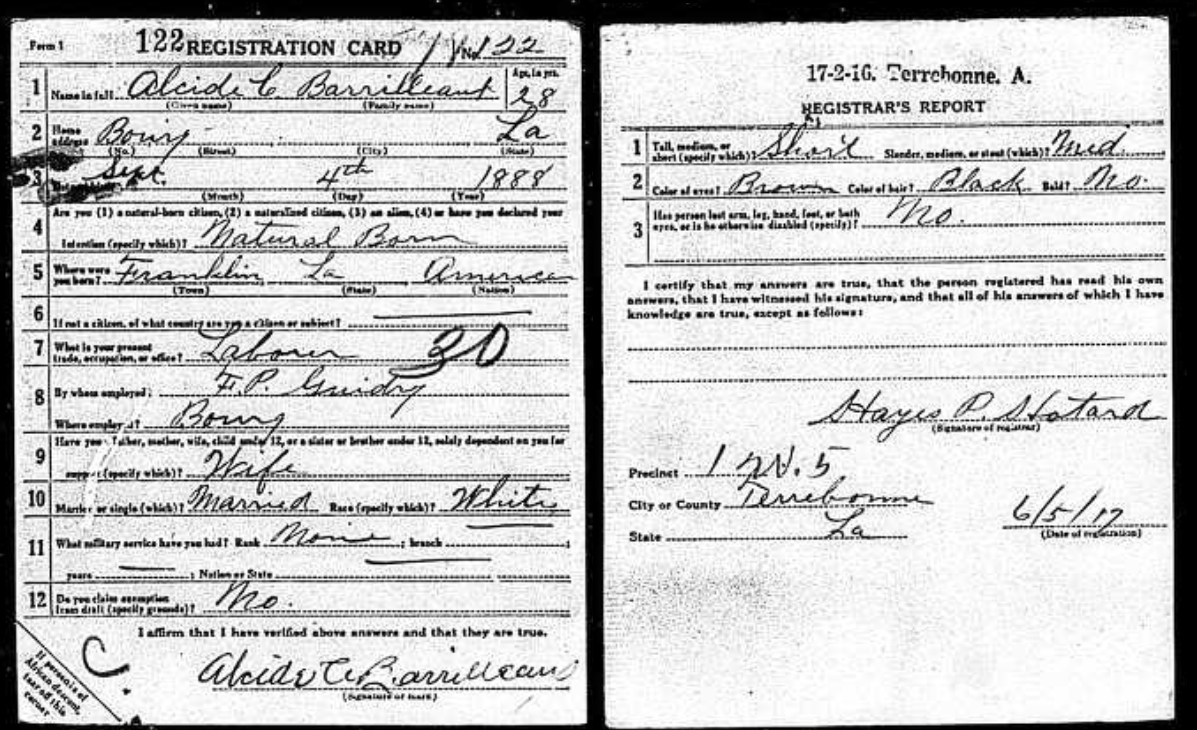 Form 1 122 REGISTRATION CARD No. 122
1 Name in full Alcide C Barrilleaux Age, in yrs. 28
(Given name) (Family name)
2 Home address Bourg La
(No.) (Street) (City) (State)
3 Sept. 4th 1888
(Month) (Day) (Year)
4 Are you (1) a natural-born citizen, (2) a naturalized citizen, (3) an alien, (4) or have you declared your
intention (specify which)? Natural Born
5 Where were you born? Franklin La America
(Town) (State) (Nation)
6 If not a citizen, of what country are you a citizen or subject?
7 What is your present trade, occupation, or office? Laborer 30
8 By whom employed? F. P. Guidry
Where employed? Bourg
9 Have you father, mother, wife, child under 12, or a sister or brother under 12, solely dependent on you for
support (specify which)? Wife
10 Married or single (which)? Married Race (specify which)? White
11 What military service have you had? Rank None ; branch ;
years ; Nation or State
12 Do you claim exemption from draft (specify grounds)? No.
I affirm that I have verified above answers and that they are true.
C.
Alcide C. Barrilleaux
(Signature or mark)
If person is of
African descent,
tear off this
corner
17-2-16. Terrebonne. A.
REGISTRAR'S REPORT
1 Tall, medium, or short (specify which)? Short Slender, medium, or stout (which)? Med.
2 Color of eyes? Brown Color of hair? Black Bald? No.
3 Has person lost arm, leg, hand, foot, or both eyes, or is he otherwise disabled (specify)? No.
I certify that my answers are true, that the person registered has read his own
answers, that I have witnessed his signature, and that all of his answers of which I have
knowledge are true, except as follows:
Hayes P. Hotard
(Signature of registrar)
Precinct 1 W. 5
City or County Terrebonne
State La 6/5/17
(Date of registration)